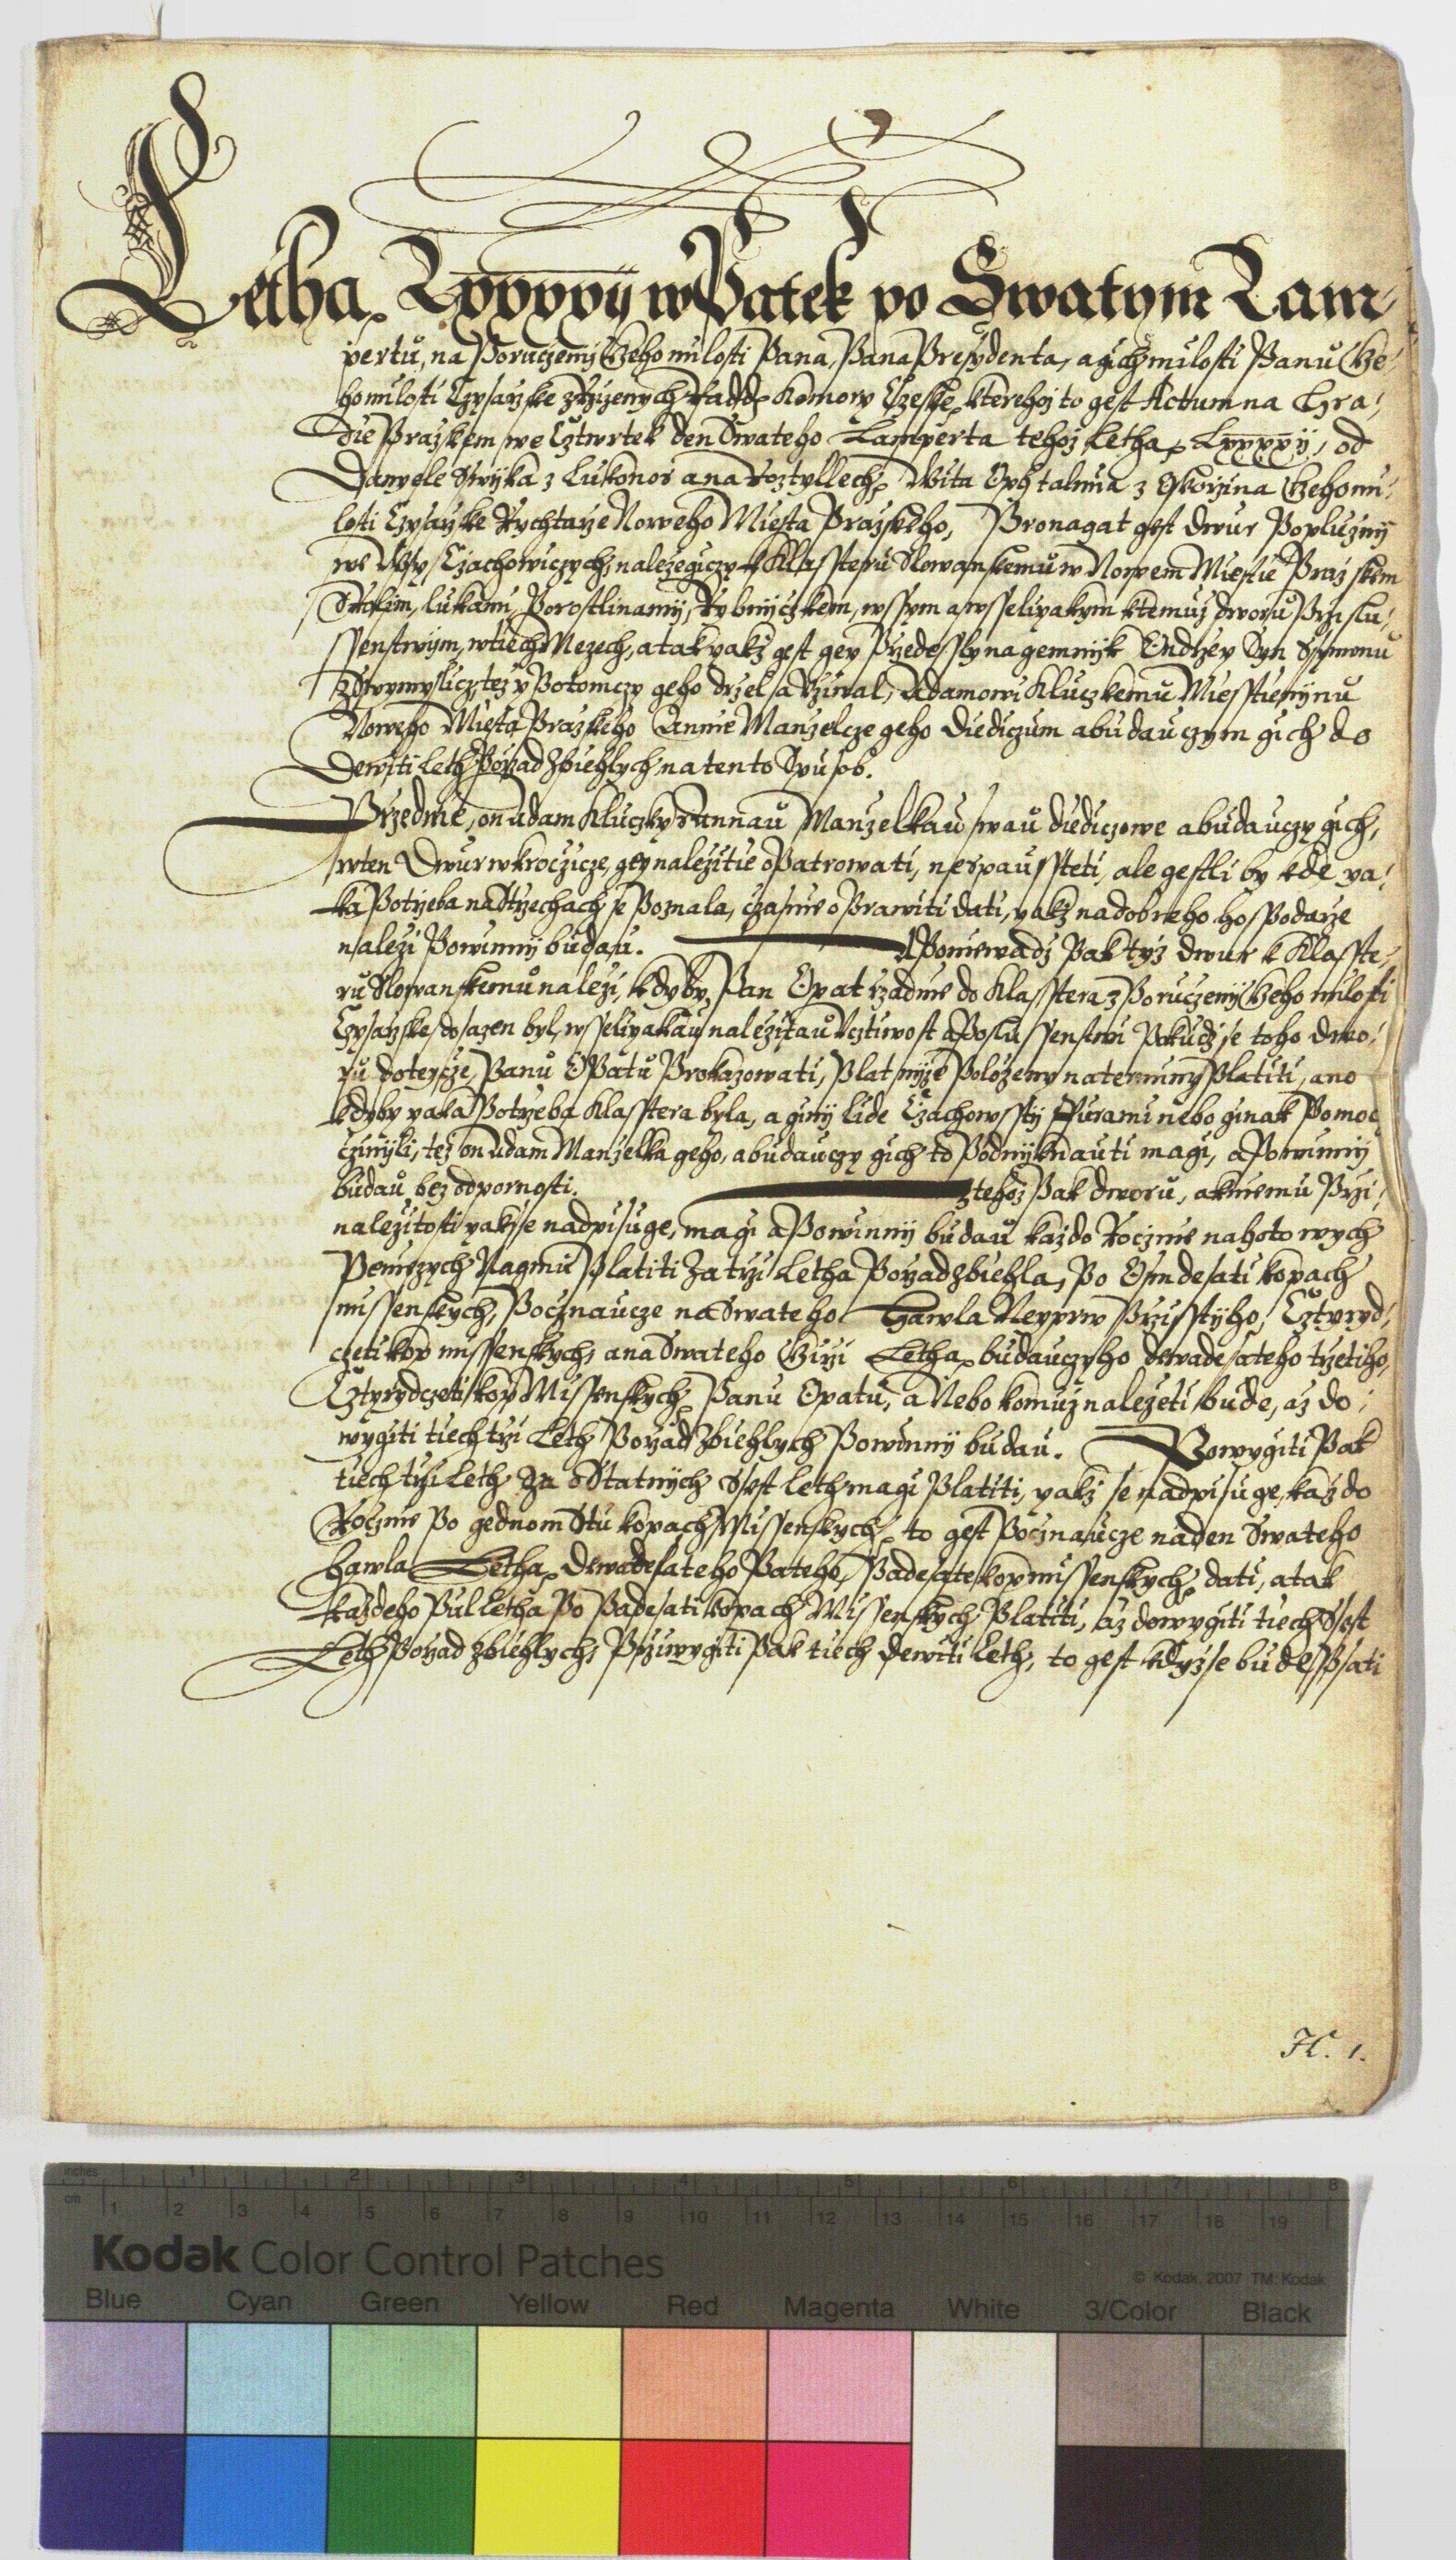 Letha Lxxxxij w Patek po Swatym Lam-
pertu, na Poruczenij Geho milosti Pana, Pana Presydenta, a gich milosti Panuo Ge-
ho milosti Czysarzske zrzizenych Radd Komory Czeske, kterehoz to gest Actum na Hra-
die Prazskem we Cztwrtek den Swateho Lamperta tehoz Letha Lxxxxij, od
Danyele Swika z Lukonos a na Roztyllech, Wita Ophtalmia z Oskorzina Geho mi-
losti Czysarzske Rychtarze Noweho Miesta Prazskeho, Pronagat gest dwur Popluznij
we Wsy Czachowiczych, nalezegiczy k Klassteru Slowanskemu w Nowem Miestie Prazskem
s Rolim, lukami, Porostlinamij, Rybnijczkem, wssym a wsselyyakym k temuz dworu Przislu-
ssenstwijm, w tiech Mezech, a tak yakz gest gey Przedesslyy nagemnijk Ondrzey Syn Ssymonu
z Drzymyslicz, tez y Potomczy geho drzel a Vziwal, Adamowi Kluczkemu Miesstieninu
Noweho Miesta Prazskeho Annie Manzelcze geho diediczum a buduczym gich do
Dewiti Leth Porzad Zbiehlych na tento Spusob.
Przedně, on Adam Kluczky s Annau Manzelkau swau diediczowe a budauczy gich,
w ten Dwur wkroczicze, gey nalezitie oPatrowati, nespaussteti, ale gestli by kde ya-
ka Potrzeba na Strzechach se Poznala, czasnie oPrawiti dati, yakz na dobreho hosPodarze
nalezi Powinnij budau. A Poniewadz Pak tyz dwur k Klasste-
ru Slowanskemu nalezi, kdyby Pan Opat rzadnie do Klasstera z Poruczenij Geho milosti
Czysarzske dosazen byl, wsseliyakau nalezitau Vcztiwost a Poslussenstwi Pokudz se toho dwo-
ru doteycze, Panu OPatu Prokazowati, Plat nijze Polozeny na terminy Platiti, ano
kdyby yaka Potrzeba Klasstera byla, a ginij lide Czachowsstij Furami nebo ginak Pomoc
czinijli, tez on Adam Manzelka geho, a budauczy gich to Podnijknauti magi, a Powinnij
budau bez odpornosti. z tehoz Pak dworu, a k niemu Przi-
nalezitosti yakz se nadpisuge, magi a Powinnij budau kazdo Rocznie na hotowych
Peniezych Nagmu Platiti Za trzi Letha Porzad zbiehla, Po Osmdesati kopach
missenskych, Pocznaucze na Swateho Hawla Neyprw Przisstijho, Cztyryd-
czeti kop missenskych, a na Swateho Girzi Letha budauczyho dewadesateho trzetiho,
Cztyrydczeti kop Missenskych Panu Opatu, a Nebo komuz nalezeti bude, az do
wygiti tiech trzi Leth Porzad Zbiehlych Powinnij budau. Po wygiti Pak
tiech trzi Leth Za oStatnijch Ssest leth magi Platiti, yakz se nadpisuge, kazdo
Rocznie Po gednom Stu kopach Missenskych to gest Pocznaucze na den Swateho
Hawla Letha Dewadesateho Pateho, Padesate kop missenskych dati, a tak
kazdeho Pul Letha Po Padesati kopach Missenskych Platiti, az do wygiti tiech Ssest
Leth Porzad zbiehlych, Przi wygiti Pak tiech Dewiti Leth, to gest kdyz se bude Psati
H. 1.
inches 1 2 3 4 5 6 7 8
cm 1 2 3 4 5 6 7 8 9 10 11 12 13 14 15 16 17 18 19
Kodak Color Control Patches
© Kodak, 2007 TM: Kodak
Blue Cyan Green Yellow Red Magenta White 3/Color Black